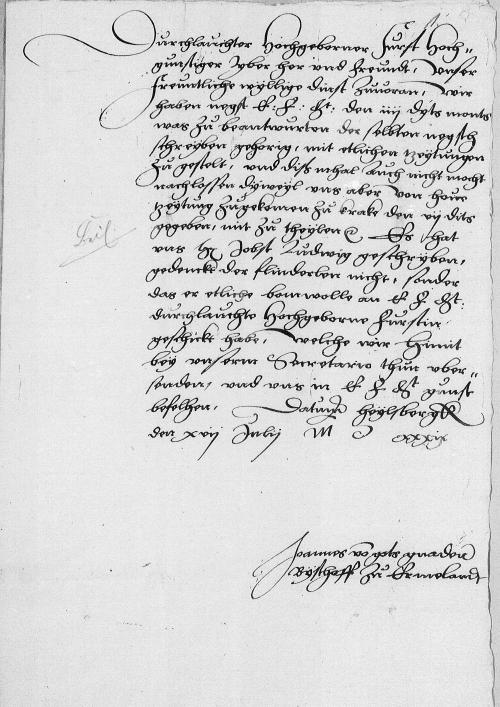 Durchlauchter Hochgeborner Furst Hoch-
gunstiger lyber her und freundt, Unser
freuntliche wyllige dinst zuvoran, Wir
haben negst E: F: G: den iiii dyts monts
was zu beantwurten der selbten negsth
schreyben gehorig, mit etlichen tzeytungen
zu gestelt, und diss mhal auch nicht mocht
nachlossen dyweyl uns aber von houe
tzeytung zugekomen zu Crake den vij dits
gegeben, mit zu theylen Es hat
uns H Jobst Ludwig geschryben,
gedencke der flinderlen nicht, sonder
das er etliche bomwolle an E F G:
durchlauchte Hochgeborne Furstin
geschickt habe, welche wir himit
bey unserm Secretario thun uber-
senden, und uns in E F G gunst
befelhen, Datum Heylsbergk
den xvij Julij M D xxxix
Joannes von gots gnaden
Bysthoff zu Ermelandt